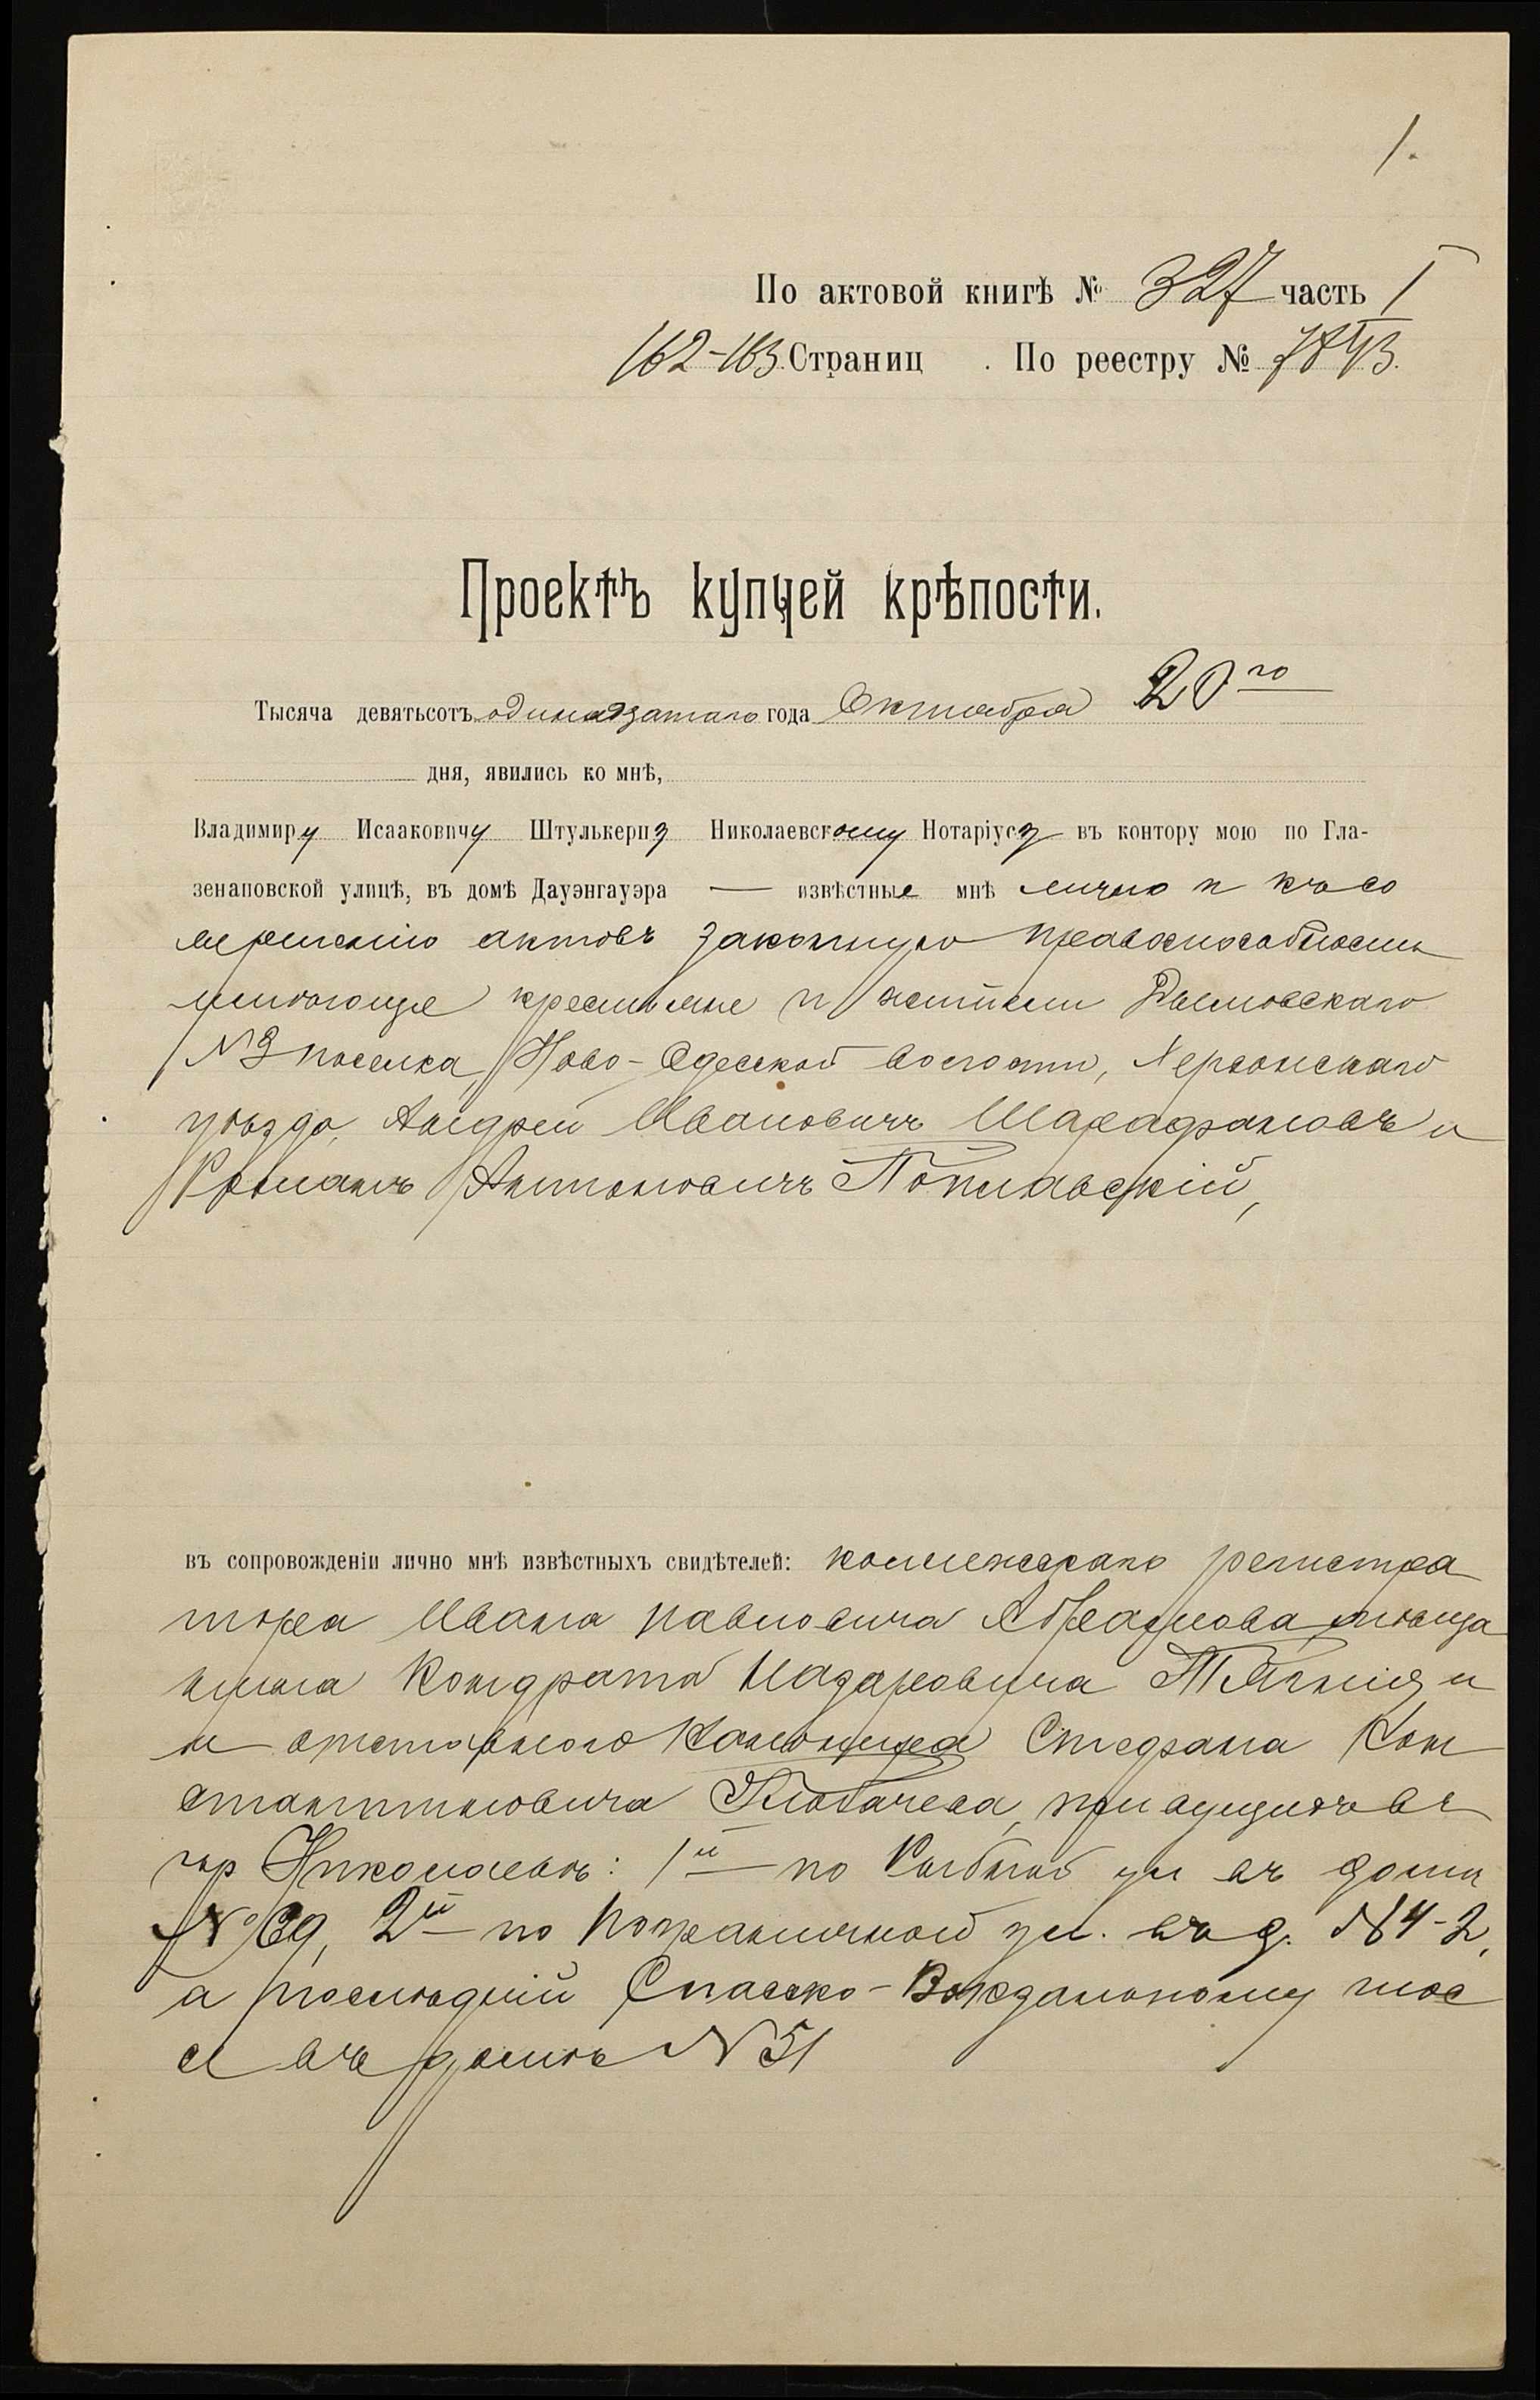 1.
По актовой книгѣ № 327 часть I
162-163 Страниц . По реестру № 7843.
Проектъ купчей крѣпости.
Тысяча девятьсотъ одинадзатаго года Октября 20го
дня, явились ко мнѣ,
Владимиру Исааковичу Штулькерцу Николаевскому Нотаріусу въ контору мою по Гла-
зенаповской улицѣ, въ домѣ Дауэнгауэра — извѣстные мнѣ лично и къ со
вершенію актовъ законную правоспособность
имѣющіе крестьяне и жители
№ 3 поселка, Ново-Одесской волости, Херсонскаго
уѣзда, Андрей Ивановичъ Шарафановъ и
Романъ Антоновичъ Поплавскій,
въ сопровожденіи лично мнѣ извѣстныхъ свидѣтелей: коллежскаго регистра
тора Ивана Павловича Абрамова, мѣща
нина Кондрата Назаровича и
и отставного Стефана Кон
стантиновича живущихъ въ
гор Николаевѣ: 1й по Рыбной ул въ домѣ
№ 69, 2й по Пограничной ул. въ д. № 4-2,
а послѣдній Спасско- шос
се въ домѣ № 51